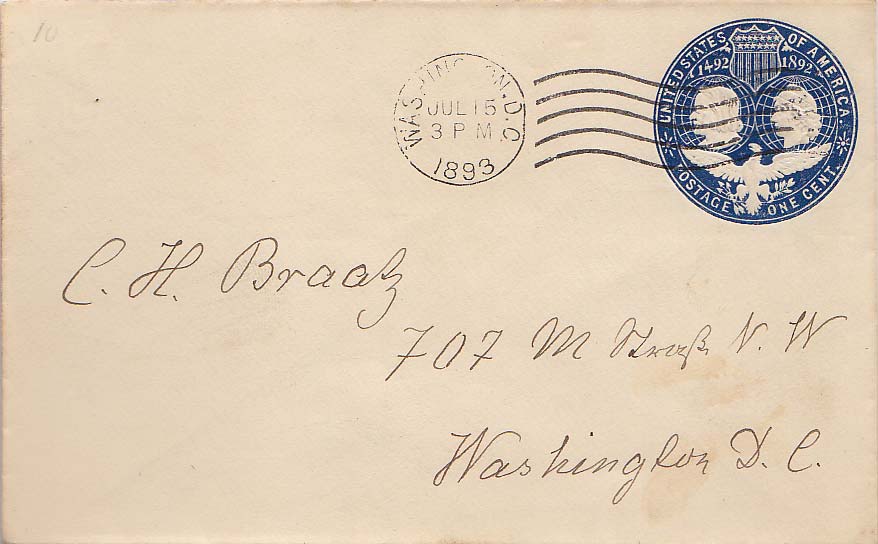 10
WASHINGTON, D.C.
JUL 15
3 PM
1893
UNITED STATES OF AMERICA
1492 1892
POSTAGE ONE CENT.
C. H. Braatz
707 M Straße N. W
Washington D. C.